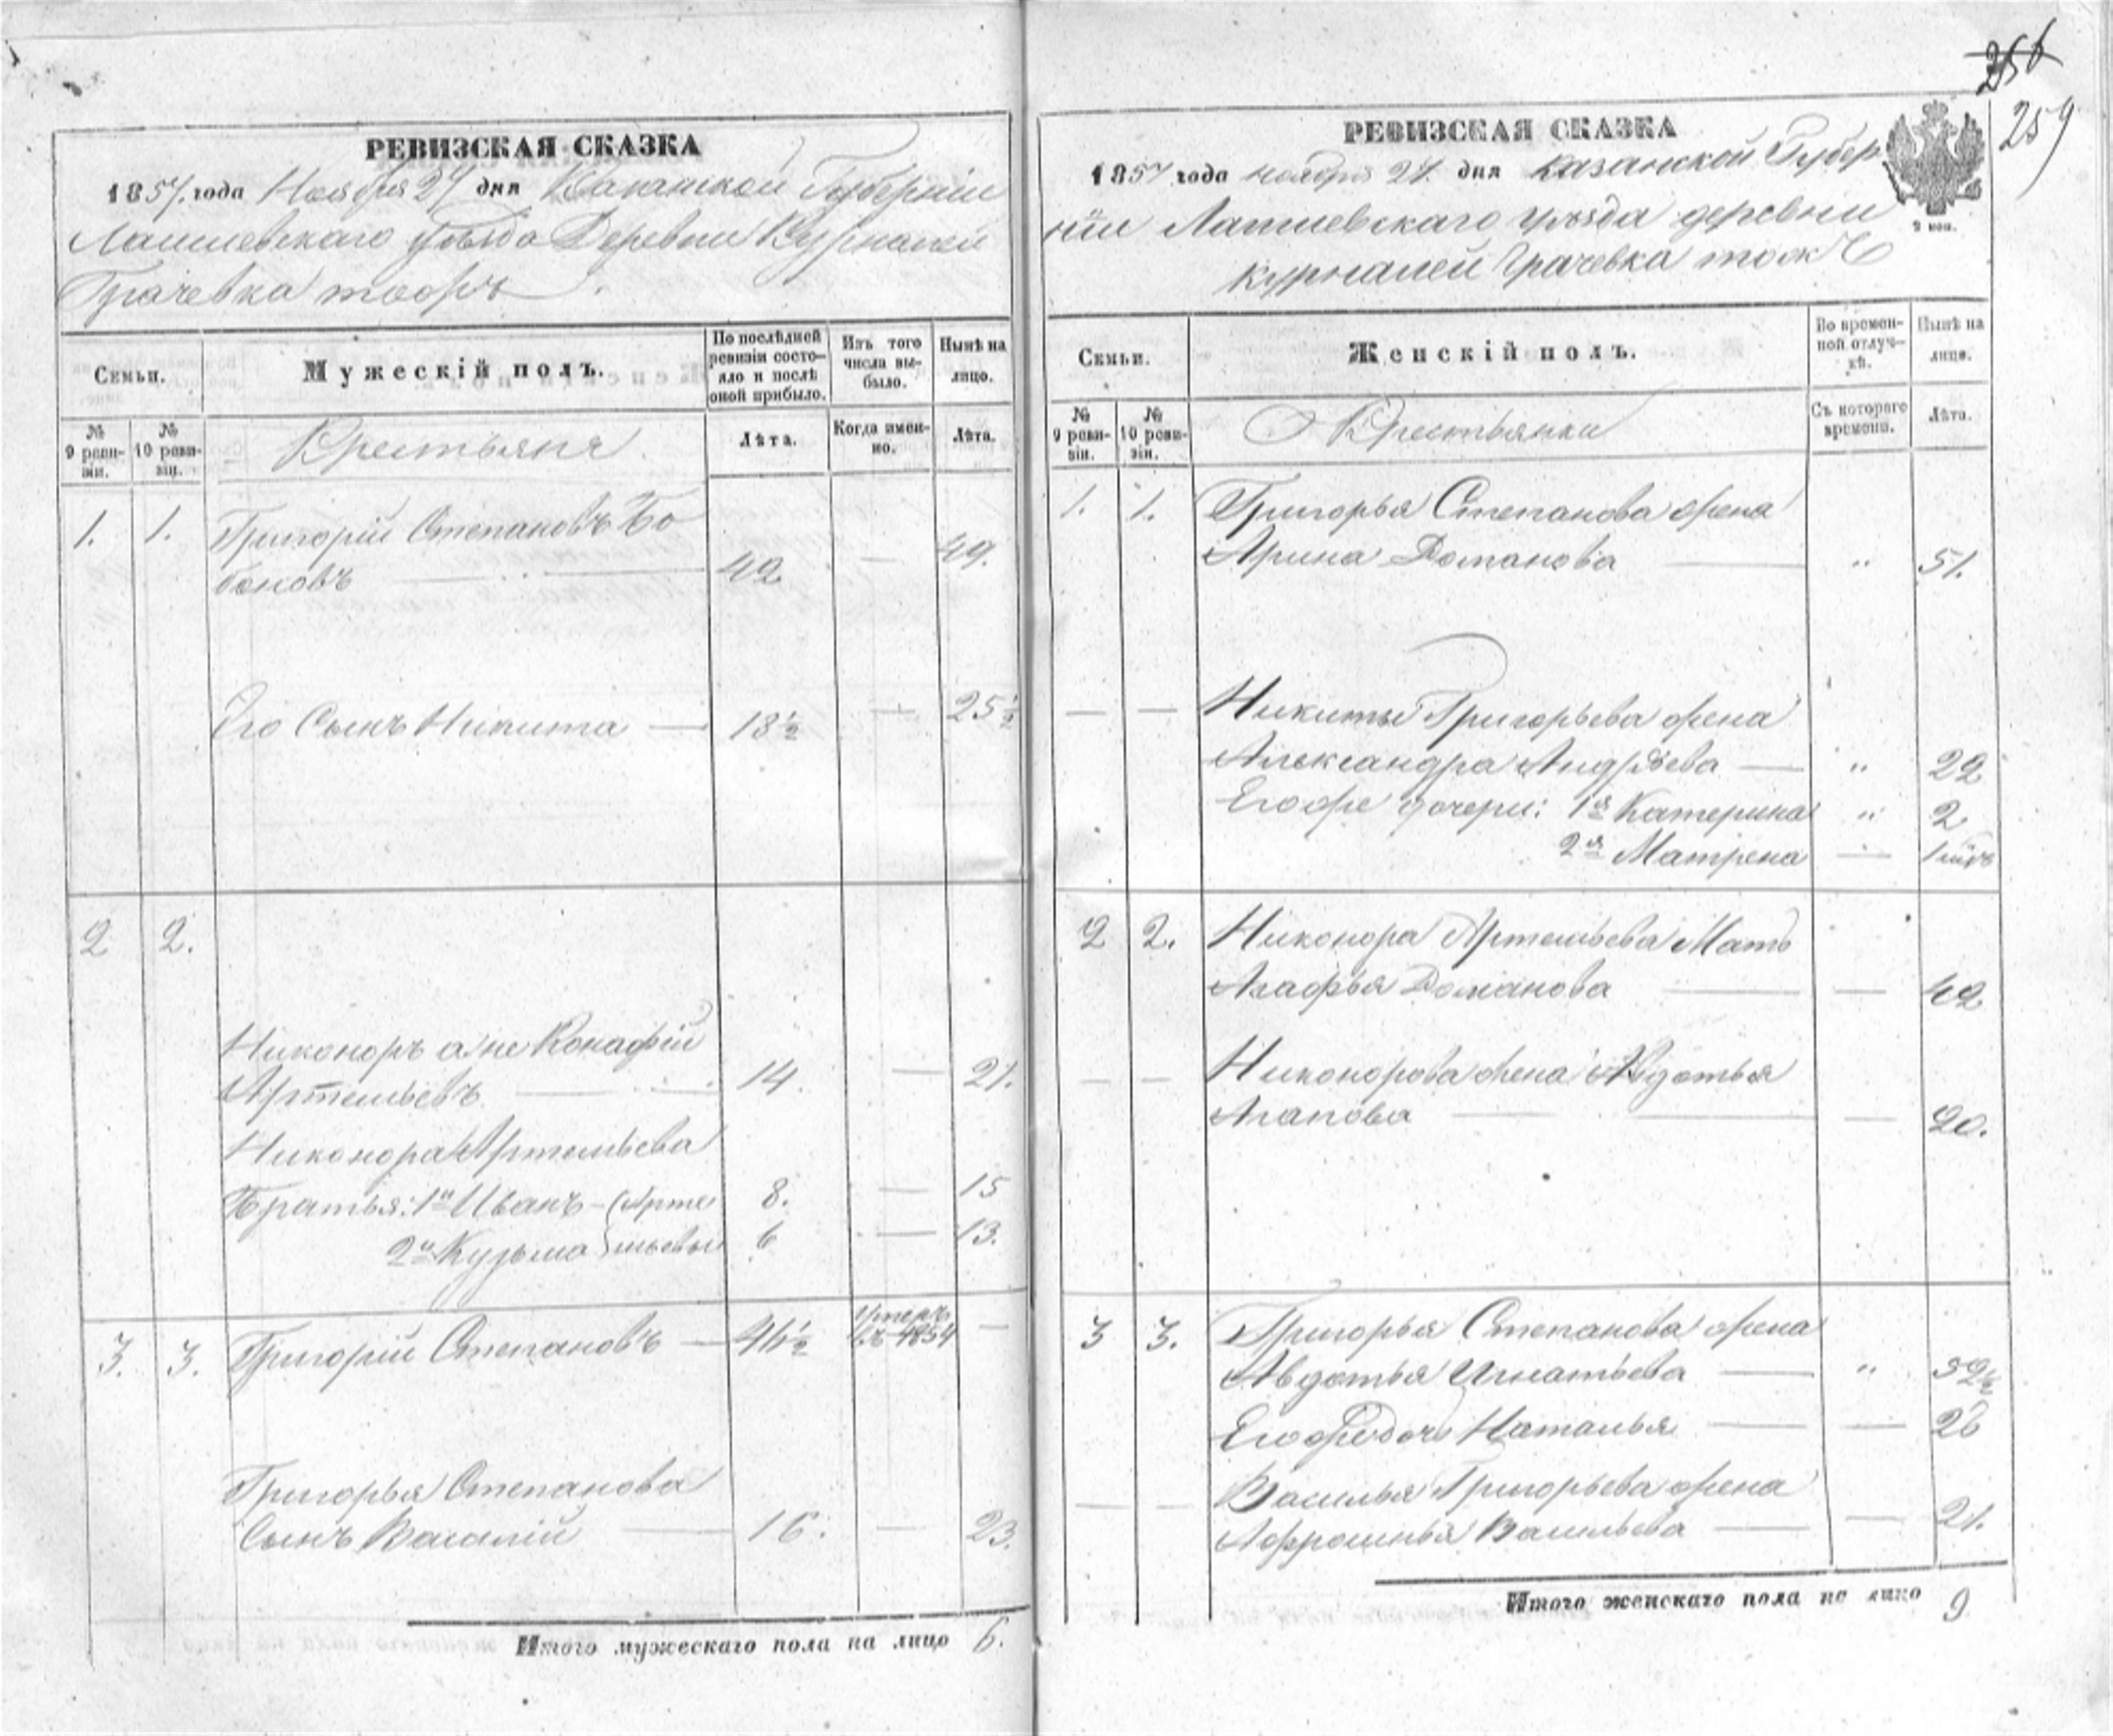 256
259
РЕВИЗСКАЯ СКАЗКА
1857. года Ноября 27 дня Казанской Губерніи
Лаишевскаго уѣзда Деревни Курналей
Грачевка тожъ
Семьи.
Мужескій полъ.
По послѣдней ревизіи состояло и послѣ оной прибыло.
Изъ того числа выбыло.
Нынѣ на лицо.
№ 9 ревизіи.
№ 10 ревизіи.
Крестьяня
Лѣта.
Когда именно.
Лѣта.
1. 1. Григорій Степановъ Бо
боновъ — 42 — 49.
Его Сынъ Никита — 18½ — 25½
2 2.
Никоноръ а не Конафій
Артемьевъ — 14. — 21.
Никонора Артемьева
Братья: 1й Иванъ — (Арте 8. — 15
2й Кузьма мьевы 6 — 13.
3. 3. Григорій Степановъ — 46½ Умеръ въ 1854 —
Григорья Степанова
Сынъ Василій — 16. — 23.
Итого мужескаго пола на лицо 6.
РЕВИЗСКАЯ СКАЗКА
1857 года ноября 27. дня казанской Губер
ніи Лаишевскаго уѣзда деревни
курналей Грачевка тожъ
2 коп.
Семьи.
Женскій полъ.
Во временной отлучкѣ.
Нынѣ на лицо.
№ 9 ревизіи.
№ 10 ревизіи.
Крестьянки
Съ котораго времени.
Лѣта.
1. 1. Григорья Степанова жена
Арина Романова — " 51.
— — Никиты Григорьева жена
Александра Андрѣева — " 22
Егоже дочери: 1я Катерина " 2
2я Матрена — 1
2 2. Никонора Артемьева Мать
Агафья Романова — — 42
— — Никонорова жена Авдотья
Агапова — — 20.
3 3. Григорья Степанова жена
Авдотья Игнатьева — " 52½
Егоже дочь Наталья — — 26
— — Василья Григорьева жена
Афросинья Васильева — — 21.
Итого женскаго пола на лицо 9